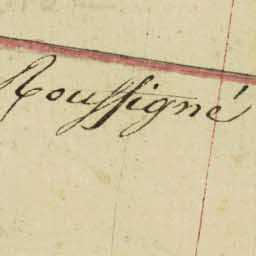 Roussigné